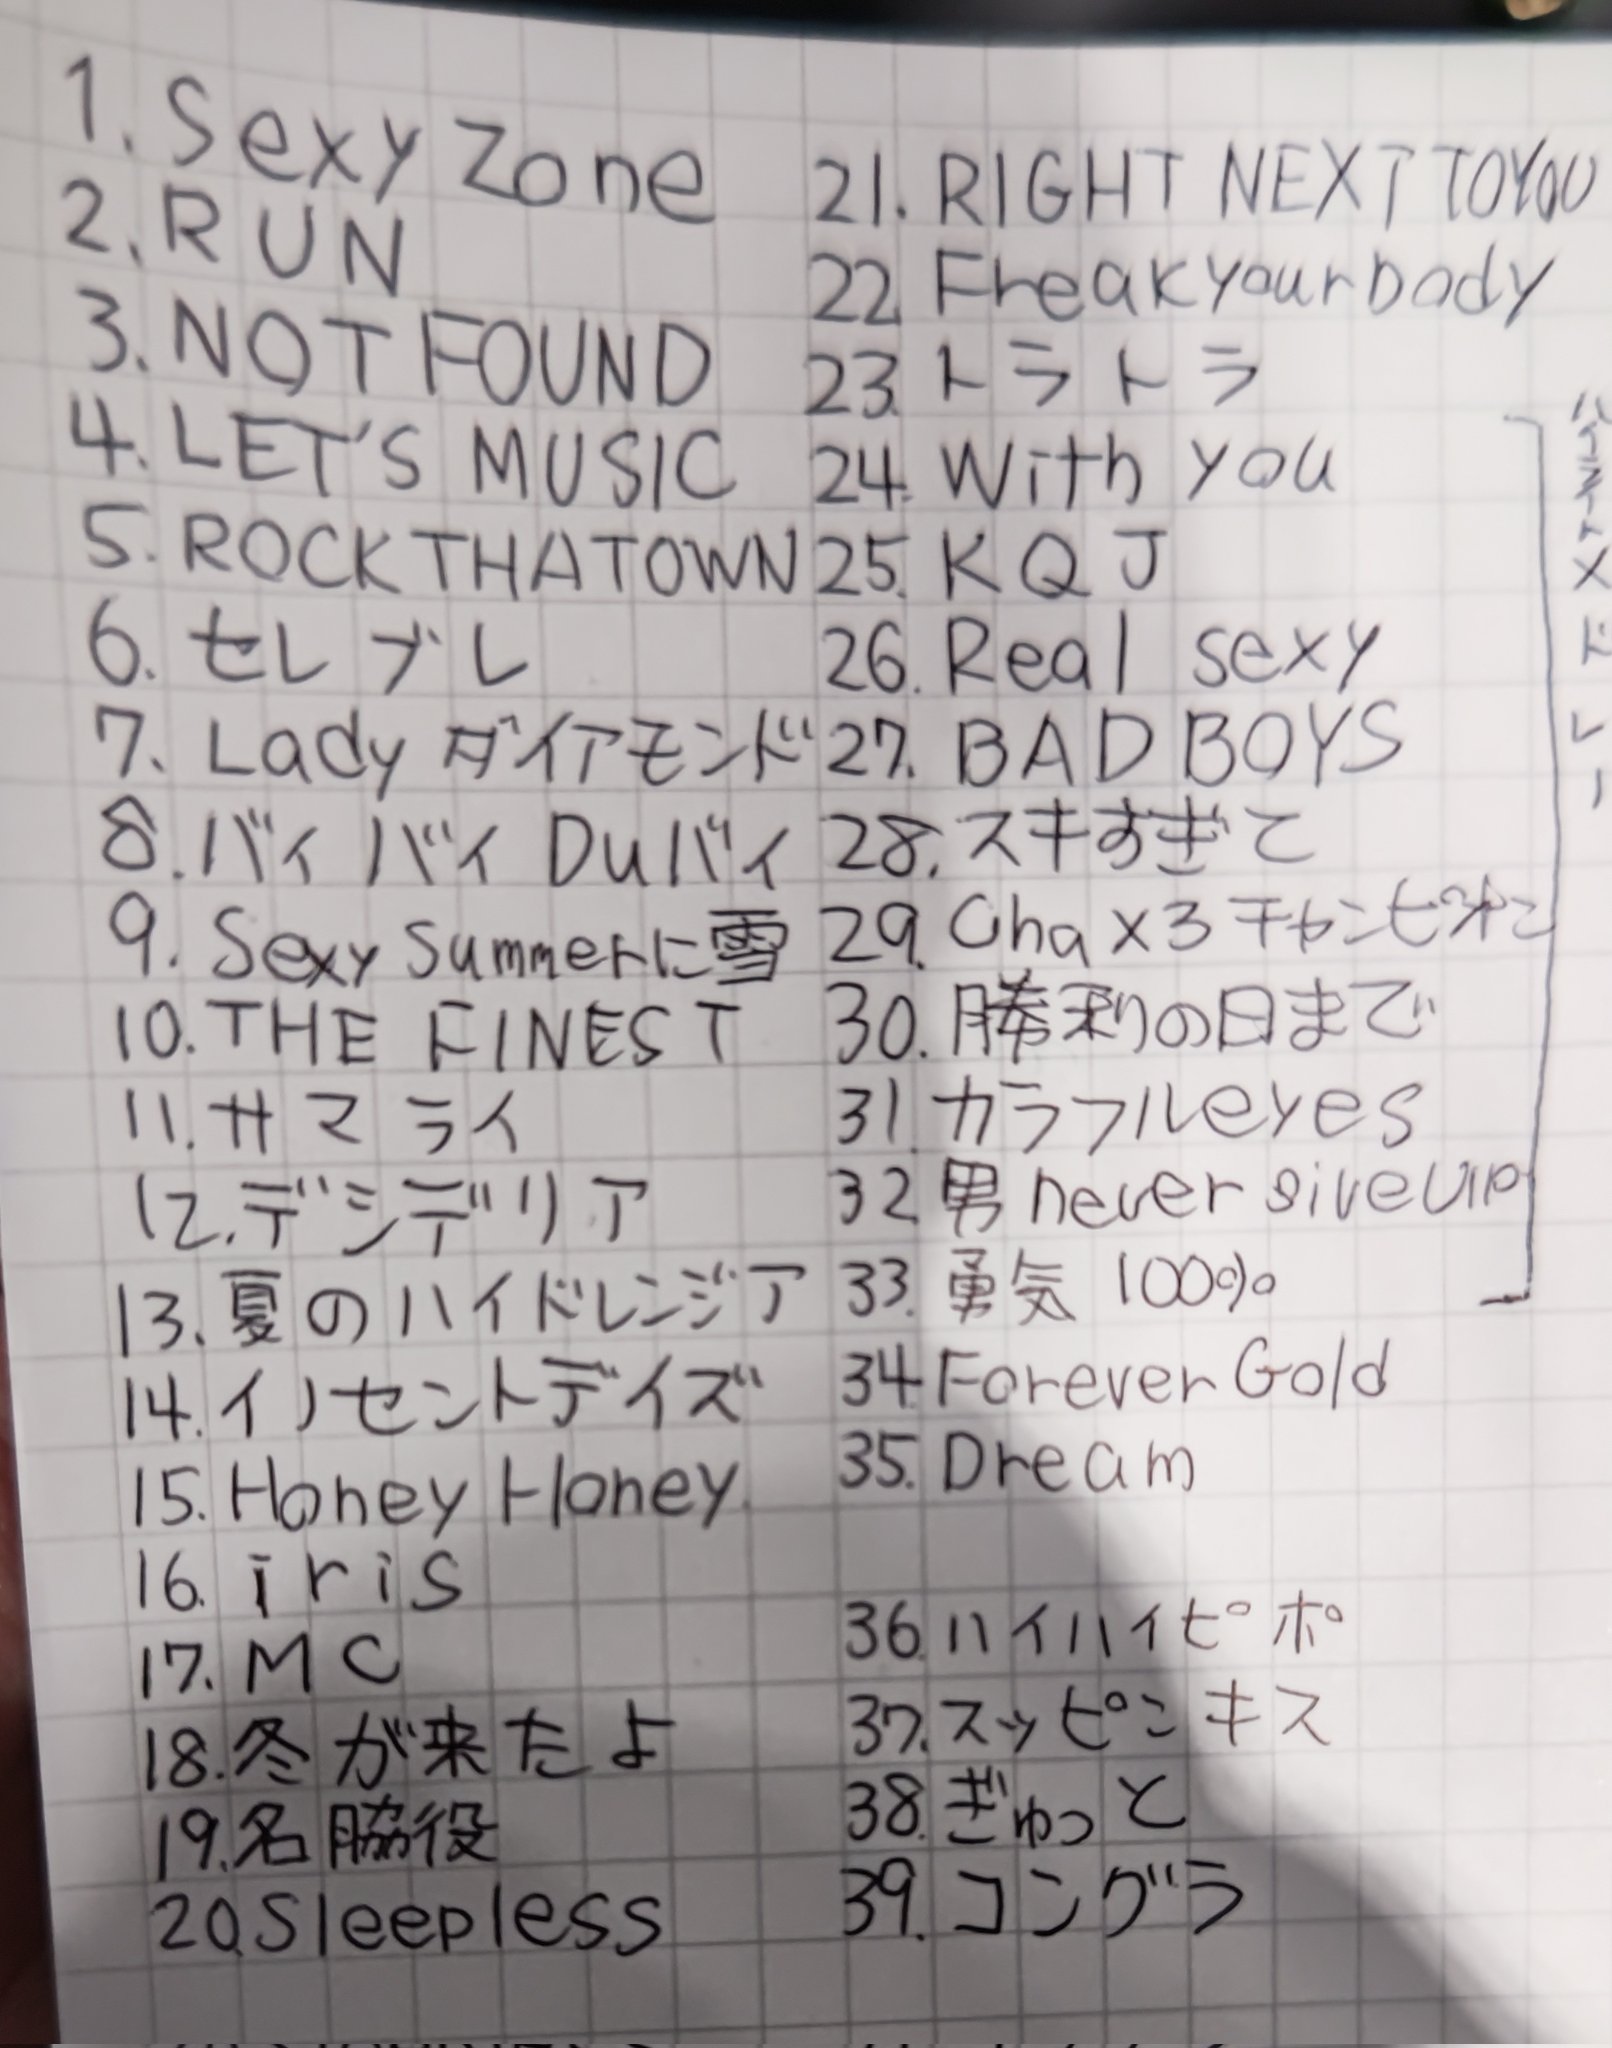 1. Sexy Zone
2. RUN
3. NOT FOUND
4. LET'S MUSIC
5. ROCK THA TOWN
6. セレブレ
7. Lady ダイアモンド
8. バィバィDuバィ
9. Sexy Summerに雪
10. THE FINEST
11. サマライ
12. デシデリア
13. 夏のハイドレンジア
14. イノセントデイズ
15. Honey Honey
16. iris
17. MC
18. 冬が来たよ
19. 名脇役
20. Sleepless
21. RIGHT NEXT TO YOU
22 Freak your body
23. トラトラ
24. With you
25. KQJ
26. Real sexy
27. BAD BOYS
28. スキすぎて
29. Cha x3 チャンピオン
30. 勝利の日まで
31. カラフルeyes
32 男 never giveup
33. 勇気 100%
34 Forever Gold
35. Dream
36. ハイハイピポ
37. スッピンキス
38. ぎゅっと
39. コングラ
メドレー